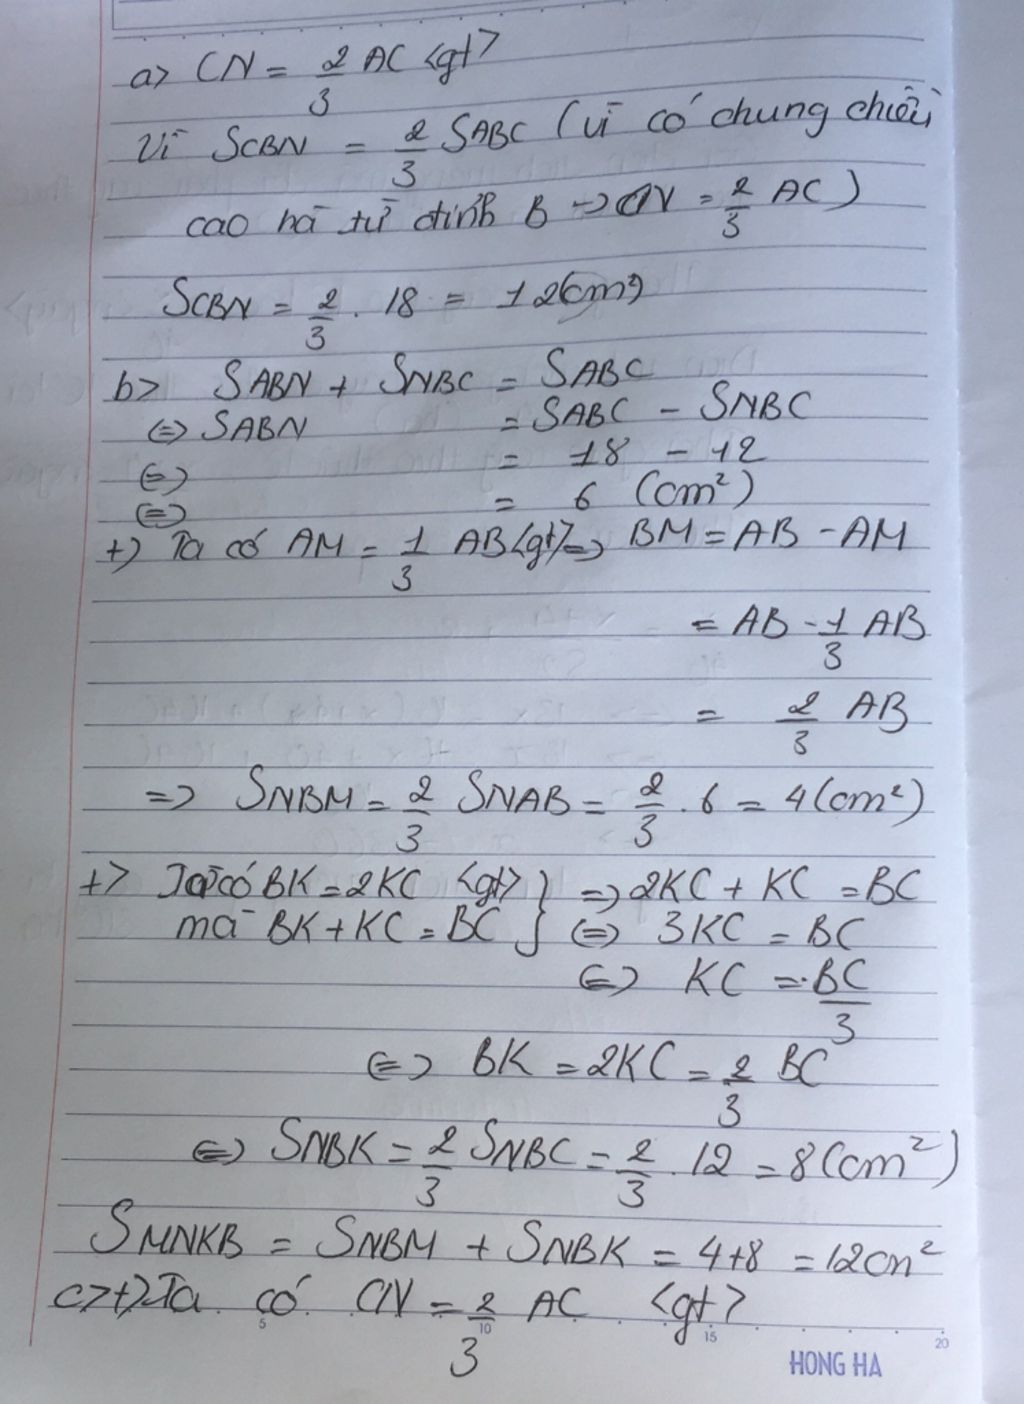 a> CN = 2/3 AC <gt>
Vì SCBN = 2/3 SABC (vì có chung chiều
cao hà từ đỉnh B → CN = 2/3 AC)
SCBN = 2/3 . 18 = 12(cm²)
b> SABN + SNBC = SABC
⇔ SABN = SABC - SNBC
⇔ = 18 - 12
⇔ = 6 (cm²)
+) Ta có AM = 1/3 AB <gt> => BM = AB - AM
= AB - 1/3 AB
= 2/3 AB
=> SNBM = 2/3 SNAB = 2/3 . 6 = 4 (cm²)
+> Ta có BK = 2KC <gt> } => 2KC + KC = BC
mà BK + KC = BC } ⇔ 3KC = BC
⇔ KC = BC/3
⇔ BK = 2KC = 2/3 BC
⇔ SNBK = 2/3 SNBC = 2/3 . 12 = 8 (cm²)
SMNKB = SNBM + SNBK = 4+8 = 12cm²
c> +) Ta có CN = 2/3 AC <gt>
5 10 15 20
HONG HA